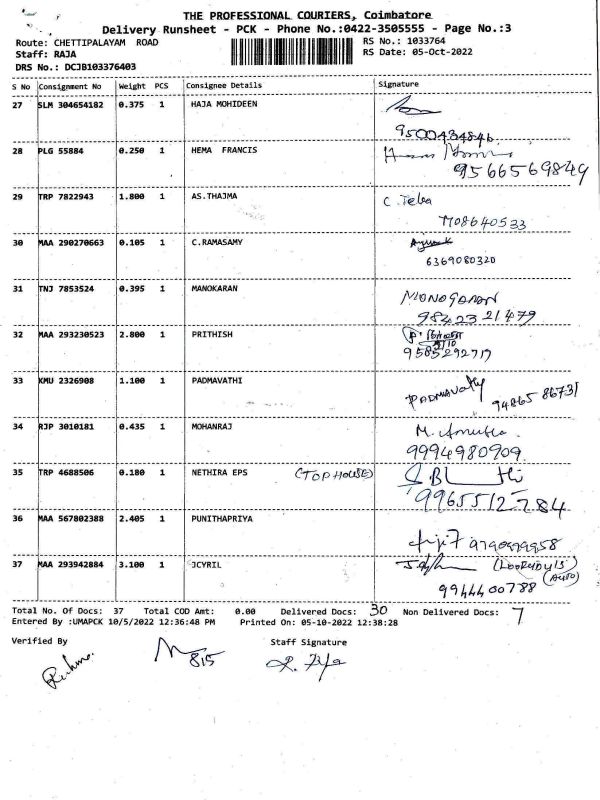 THE PROFESSIONAL COURIERS, Coimbatore
Delivery Runsheet - PCK - Phone No.:0422-3505555 - Page No.:3
Route: CHETTIPALAYAM ROAD
RS No.: 1033764
Staff: RAJA
RS Date: 05-Oct-2022
DRS No.: DCJB103376403
S No Consignment No Weight PCS Consignee Details Signature
27 SLM 304654182 0.375 1 HAJA MOHIDEEN
9500434846
28 PLG 55884 0.250 1 HEMA FRANCIS
9566569849
29 TRP 7822943 1.800 1 AS.THAJMA
C. Teba
30 MAA 290270663 0.105 1 C.RAMASAMY
6369080320
31 TNJ 7853524 0.395 1 MANOKARAN
MONOGARAN
9842321479
32 MAA 293230523 2.800 1 PRITHISH
9585292717
33 KMU 2326908 1.100 1 PADMAVATHI
PADMAVATHY 94865 86731
34 RJP 3010181 0.435 1 MOHANRAJ
M. Amutha.
9994980909
35 TRP 4688506 0.180 1 NETHIRA EPS (TOP HOUSE)
9965512784
36 MAA 567802388 2.405 1 PUNITHAPRIYA
37 MAA 293942884 3.100 1 JCYRIL
(AUTO)
9944400788
Total No. Of Docs: 37 Total COD Amt: 0.00 Delivered Docs: 30 Non Delivered Docs: 7
Entered By :UMAPCK 10/5/2022 12:36:48 PM Printed On: 05-10-2022 12:38:28
Verified By Staff Signature
815